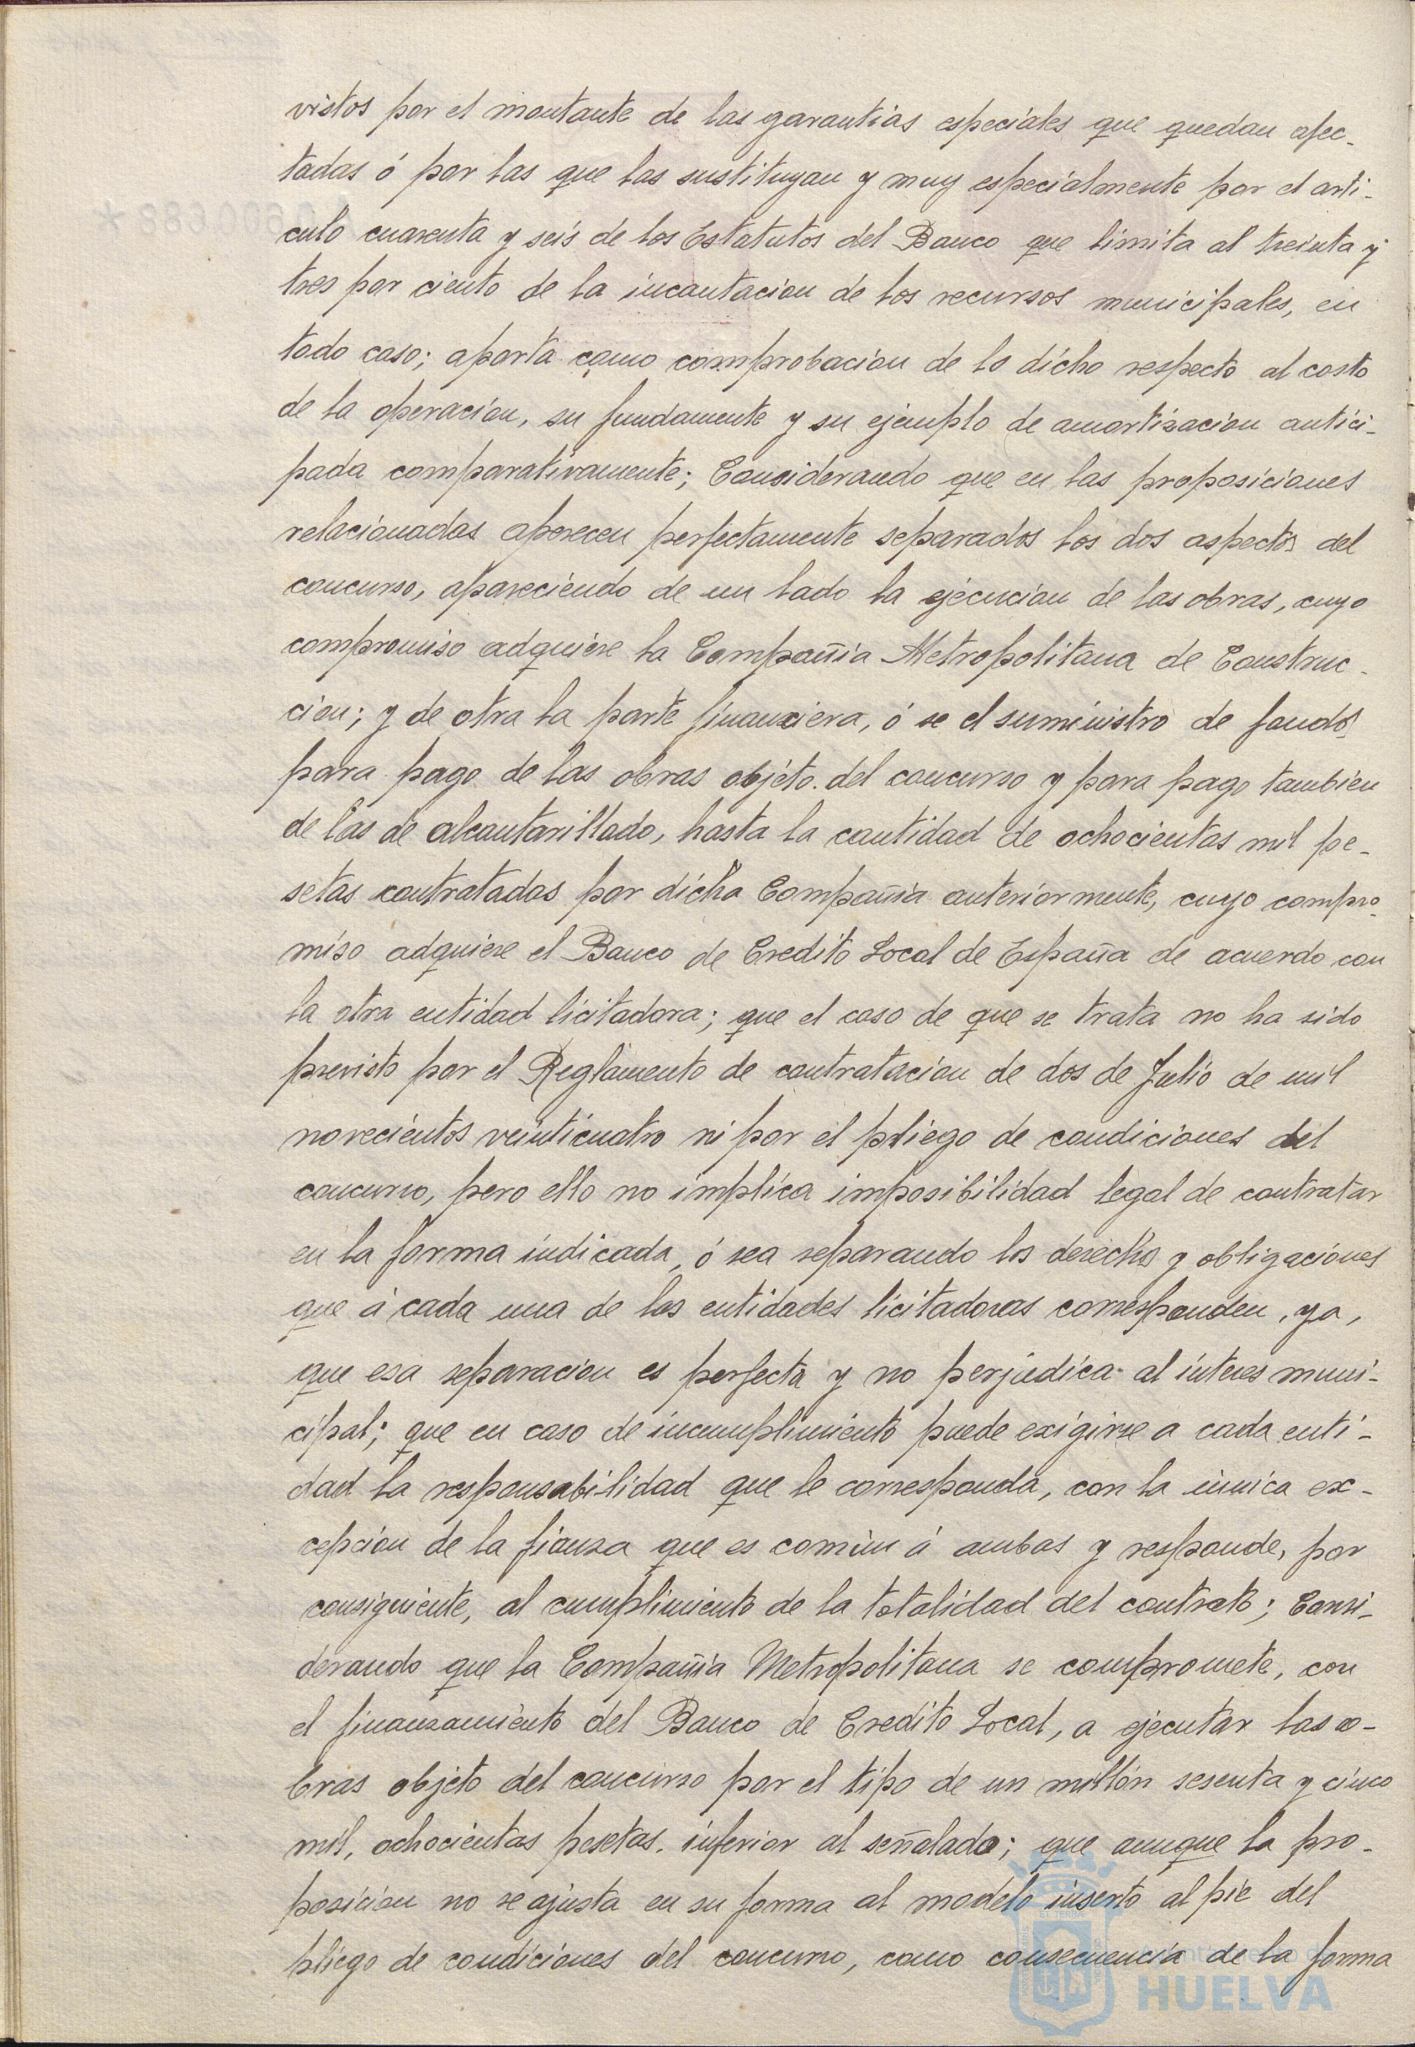 vistos por el montante de las garantias especiales que quedan afec-
tadas ó por las que las sustituyan y muy especialmente por el arti-
culo cuarenta y seis de los Estatutos del Banco que limita al treinta y
tres por ciento de la incautacion de los recursos municipales, en
todo caso; aporta como comprobacion de lo dicho respecto al costo
de la operacion, su fundamente y su ejemplo de amortisacion antici-
pada comparativamente; Considerando que en las proposiciones
relacionadas aparecen perfectamente separados los dos aspectos del
concurso, apareciendo de un lado la ejecucion de las obras, cuyo
compromiso adquiere la Compañia Metropolitana de Construc-
cion; y de otra la parte financiera, ó se el suministro de fondos
para pago de las obras objeto. del concurso y para pago tambien
de las de alcantarillado, hasta la cantidad de ochocientas mil pe-
setas contratadas por dicha Compañia anteriormente, cuyo compro-
miso adquiere el Banco de Credito Local de España de acuerdo con
la otra entidad licitadora; que el caso de que se trata no ha sido
previsto por el Reglamento de contratacion de dos de Julio de mil
novecientos veinticuatro ni por el pliego de condiciones del
concurso, pero ello no implica imposibilidad legal de contratar
en la forma indicada, ó sea separando los derechos y obligaciones
que á cada una de las entidades licitadoras corresponden, ya,
que esa separacion es perfecta y no perjudica al interes muni-
cipal; que en caso de incumplimiento puede exigirse a cada enti-
dad la responsabilidad que le corresponda, con la única ex-
cepcion de la fianza que es común á ambas y responde, por
consiguiente, al cumplimiento de la totalidad del contrato; Consi-
derando que la Compañia Metropolitana se compromete, con
el finanzamiento del Banco de Credito Local, a ejecutar las o-
bras objeto del concurso por el tipo de un millón sesenta y cinco
mil, ochocientas pesetas. inferior al señalado; que aunque la pro-
posicion no se ajusta en su forma al modelo inserto al pie del
pliego de condiciones del concurso, como consecuencia de la forma
HUELVA